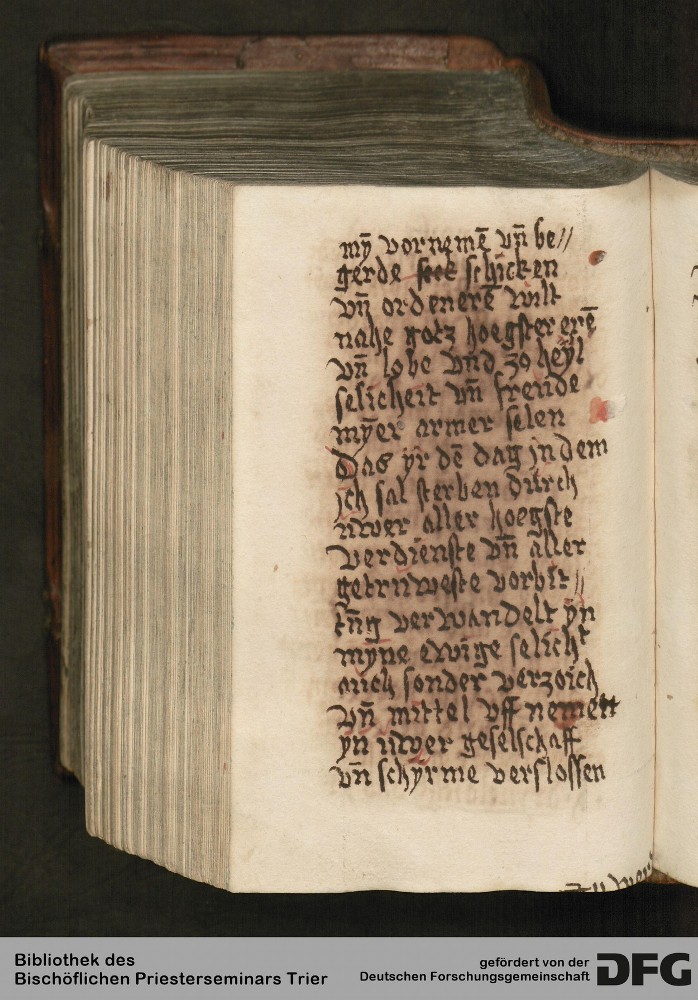 mȳ vornemē vn̄ be//
gerde seek schicken
vn̄ ordenerē wilt
nahe gotz hoegster erē
vn̄ lobe vnd zo heyl
selicheit vn̄ freude
mȳer armer selen
Das yr dē dag jn dem
ich sal sterben durch
uwer aller hoegste
verdienste vn̄ aller
getruweste vorbit//
tūg verwandelt yn
myne ewige selicht
mich sonder verzoich
vn̄ mittel vff nemett
yn uwer geselschaff
vn̄ schyrme verslossen
Bibliothek des
Bischöflichen Priesterseminars Trier
gefördert von der
Deutschen Forschungsgemeinschaft
DFG